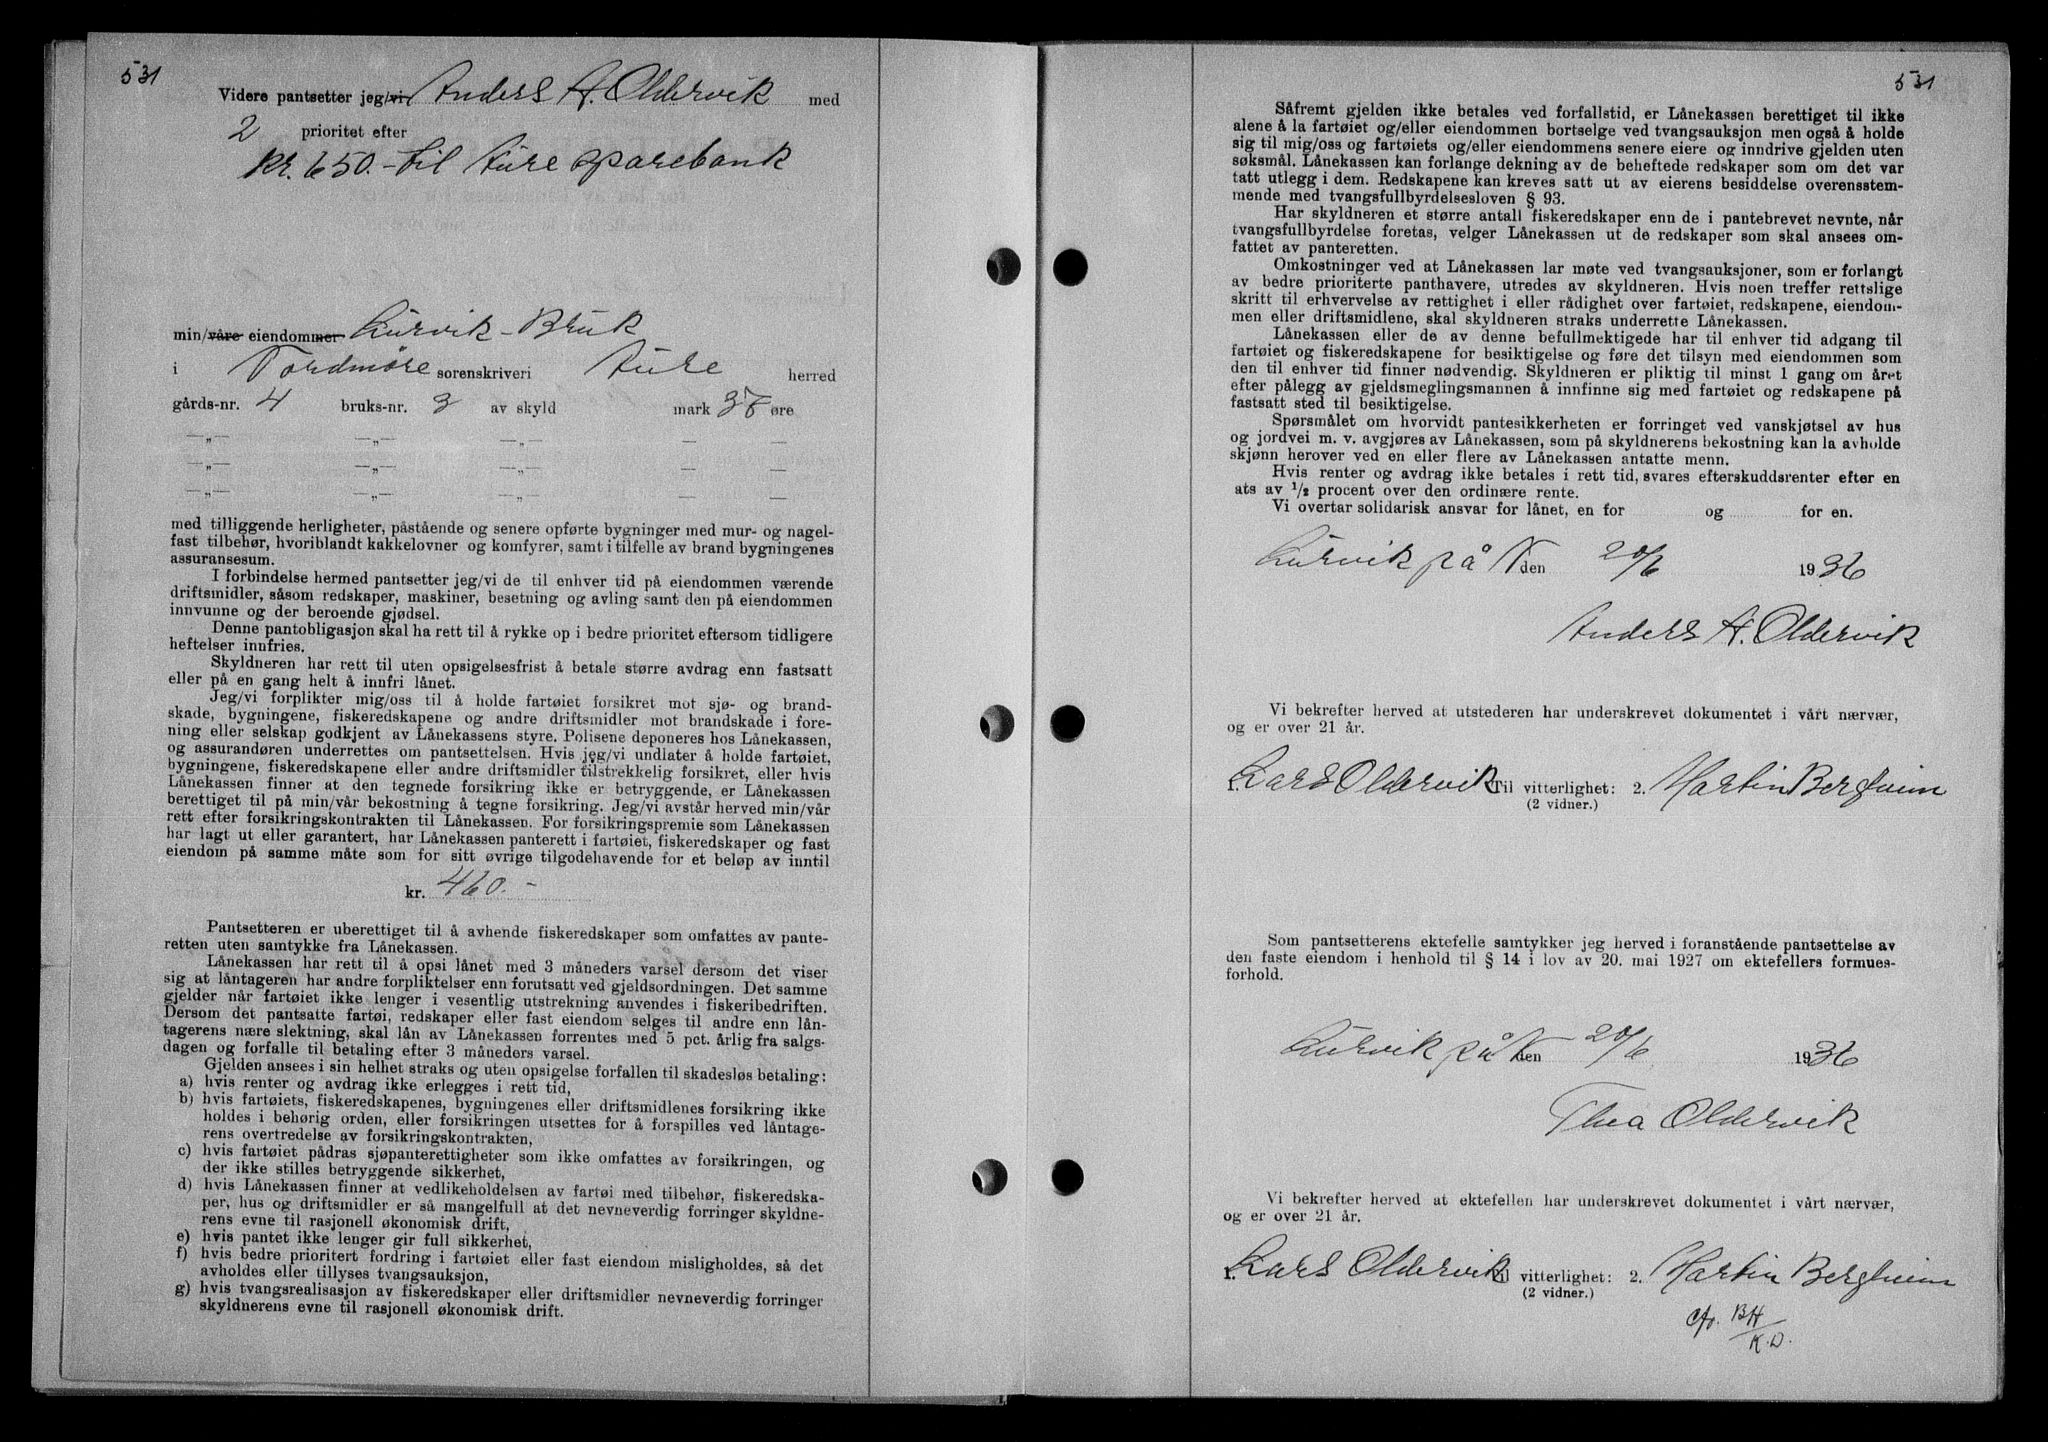 531
Videre pantsetter jeg/vi Anders A. Oldervik med
2 prioritet efter
kr. 650.- til Aure sparebank
min/våre eiendommer Lurvik-Bruk
i Nordmøre sorenskriveri Aure herred
gårds-nr. 4 bruks-nr. 3 av skyld mark 38 øre
—„— —„— —„— — —
—„— —„— —„— — —
—„— —„— —„— — —
med tilliggende herligheter, påstående og senere opførte bygninger med mur- og nagel-
fast tilbehør, hvoriblandt kakkelovner og komfyrer, samt i tilfelle av brand bygningenes
assuransesum.
I forbindelse hermed pantsetter jeg/vi de til enhver tid på eiendommen værende
driftsmidler, såsom redskaper, maskiner, besetning og avling samt den på eiendommen
innvunne og der beroende gjødsel.
Denne pantobligasjon skal ha rett til å rykke op i bedre prioritet eftersom tidligere
heftelser innfries.
Skyldneren har rett til uten opsigelsesfrist å betale større avdrag enn fastsatt
eller på en gang helt å innfri lånet.
Jeg/vi forplikter mig/oss til å holde fartøiet forsikret mot sjø- og brand-
skade, bygningene, fiskeredskapene og andre driftsmidler mot brandskade i fore-
ning eller selskap godkjent av Lånekassens styre. Polisene deponeres hos Lånekassen,
og assurandøren underrettes om pantsettelsen. Hvis jeg/vi undlater å holde fartøiet,
bygningene, fiskeredskapene eller andre driftsmidler tilstrekkelig forsikret, eller hvis
Lånekassen finner at den tegnede forsikring ikke er betryggende, er Lånekassen
berettiget til på min/vår bekostning å tegne forsikring. Jeg/vi avstår herved min/vår
rett efter forsikringskontrakten til Lånekassen. For forsikringspremie som Lånekassen
har lagt ut eller garantert, har Lånekassen panterett i fartøiet, fiskeredskaper og fast
eiendom på samme måte som for sitt øvrige tilgodehavende for et beløp av inntil
kr. 460.-
Pantsetteren er uberettiget til å avhende fiskeredskaper som omfattes av pante-
retten uten samtykke fra Lånekassen.
Lånekassen har rett til å opsi lånet med 3 måneders varsel dersom det viser
sig at låntageren har andre forpliktelser enn forutsatt ved gjeldsordningen. Det samme
gjelder når fartøiet ikke lenger i vesentlig utstrekning anvendes i fiskeribedriften.
Dersom det pantsatte fartøi, redskaper eller fast eiendom selges til andre enn lån-
tagerens nære slektning, skal lån av Lånekassen forrentes med 5 pct. årlig fra salgs-
dagen og forfalle til betaling efter 3 måneders varsel.
Gjelden ansees i sin helhet straks og uten opsigelse forfallen til skadesløs betaling:
a) hvis renter og avdrag ikke erlegges i rett tid,
b) hvis fartøiets, fiskeredskapenes, bygningenes eller driftsmidlenes forsikring ikke
holdes i behørig orden, eller forsikringen utsettes for å forspilles ved låntage-
rens overtredelse av forsikringskontrakten,
c) hvis fartøiet pådras sjøpanterettigheter som ikke omfattes av forsikringen, og
der ikke stilles betryggende sikkerhet,
d) hvis Lånekassen finner at vedlikeholdelsen av fartøi med tilbehør, fiskeredska-
per, hus og driftsmidler er så mangelfull at det nevneverdig forringer skyldne-
rens evne til rasjonell økonomisk drift,
e) hvis pantet ikke lenger gir full sikkerhet,
f) hvis bedre prioritert fordring i fartøiet eller fast eiendom misligholdes, så det
avholdes eller tillyses tvangsauksjon,
g) hvis tvangsrealisasjon av fiskeredskaper eller driftsmidler nevneverdig forringer
skyldnerens evne til rasjonell økonomisk drift.
531
Såfremt gjelden ikke betales ved forfallstid, er Lånekassen berettiget til ikke
alene å la fartøiet og/eller eiendommen bortselge ved tvangsauksjon men også å holde
sig til mig/oss og fartøiets og/eller eiendommens senere eiere og inndrive gjelden uten
søksmål. Lånekassen kan forlange dekning av de beheftede redskaper som om det var
tatt utlegg i dem. Redskapene kan kreves satt ut av eierens besiddelse overensstem-
mende med tvangsfullbyrdelsesloven § 93.
Har skyldneren et større antall fiskeredskaper enn de i pantebrevet nevnte, når
tvangsfullbyrdelse foretas, velger Lånekassen ut de redskaper som skal ansees om-
fattet av panteretten.
Omkostninger ved at Lånekassen lar møte ved tvangsauksjoner, som er forlangt
av bedre prioriterte panthavere, utredes av skyldneren. Hvis noen treffer rettslige
skritt til erhvervelse av rettighet i eller rådighet over fartøiet, redskapene, eiendom-
men eller driftsmidlene, skal skyldneren straks underrette Lånekassen.
Lånekassen eller de av denne befullmektigede har til enhver tid adgang til
fartøiet og fiskeredskapene for besiktigelse og føre det tilsyn med eiendommen som
den til enhver tid finner nødvendig. Skyldneren er pliktig til minst 1 gang om året
efter pålegg av gjeldsmeglingsmannen å innfinne sig med fartøiet og redskapene på
fastsatt sted til besiktigelse.
Spørsmålet om hvorvidt pantesikkerheten er forringet ved vanskjøtsel av hus
og jordvei m. v. avgjøres av Lånekassen, som på skyldnerens bekostning kan la avholde
skjønn herover ved en eller flere av Lånekassen antatte menn.
Hvis renter og avdrag ikke betales i rett tid, svares efterskuddsrenter efter en
sats av 1/2 procent over den ordinære rente.
Vi overtar solidarisk ansvar for lånet, en for og for en.
Lurvik på N den 20/6 1936
Anders A. Oldervik
Vi bekrefter herved at utstederen har underskrevet dokumentet i vårt nærvær,
og er over 21 år.
1. Lars Oldervik Til vitterlighet: 2. Martin Bergheim
(2 vidner.)
Som pantsetterens ektefelle samtykker jeg herved i foranstående pantsettelse av
den faste eiendom i henhold til § 14 i lov av 20. mai 1927 om ektefellers formues-
forhold.
Lurvik på N den 20/6 1936
Thea Oldervik
Vi bekrefter herved at ektefellen har underskrevet dokumentet i vårt nærvær,
og er over 21 år.
1. Lars Oldervik Til vitterlighet: 2. Martin Bergheim
(2 vidner.)
BH
K.D.